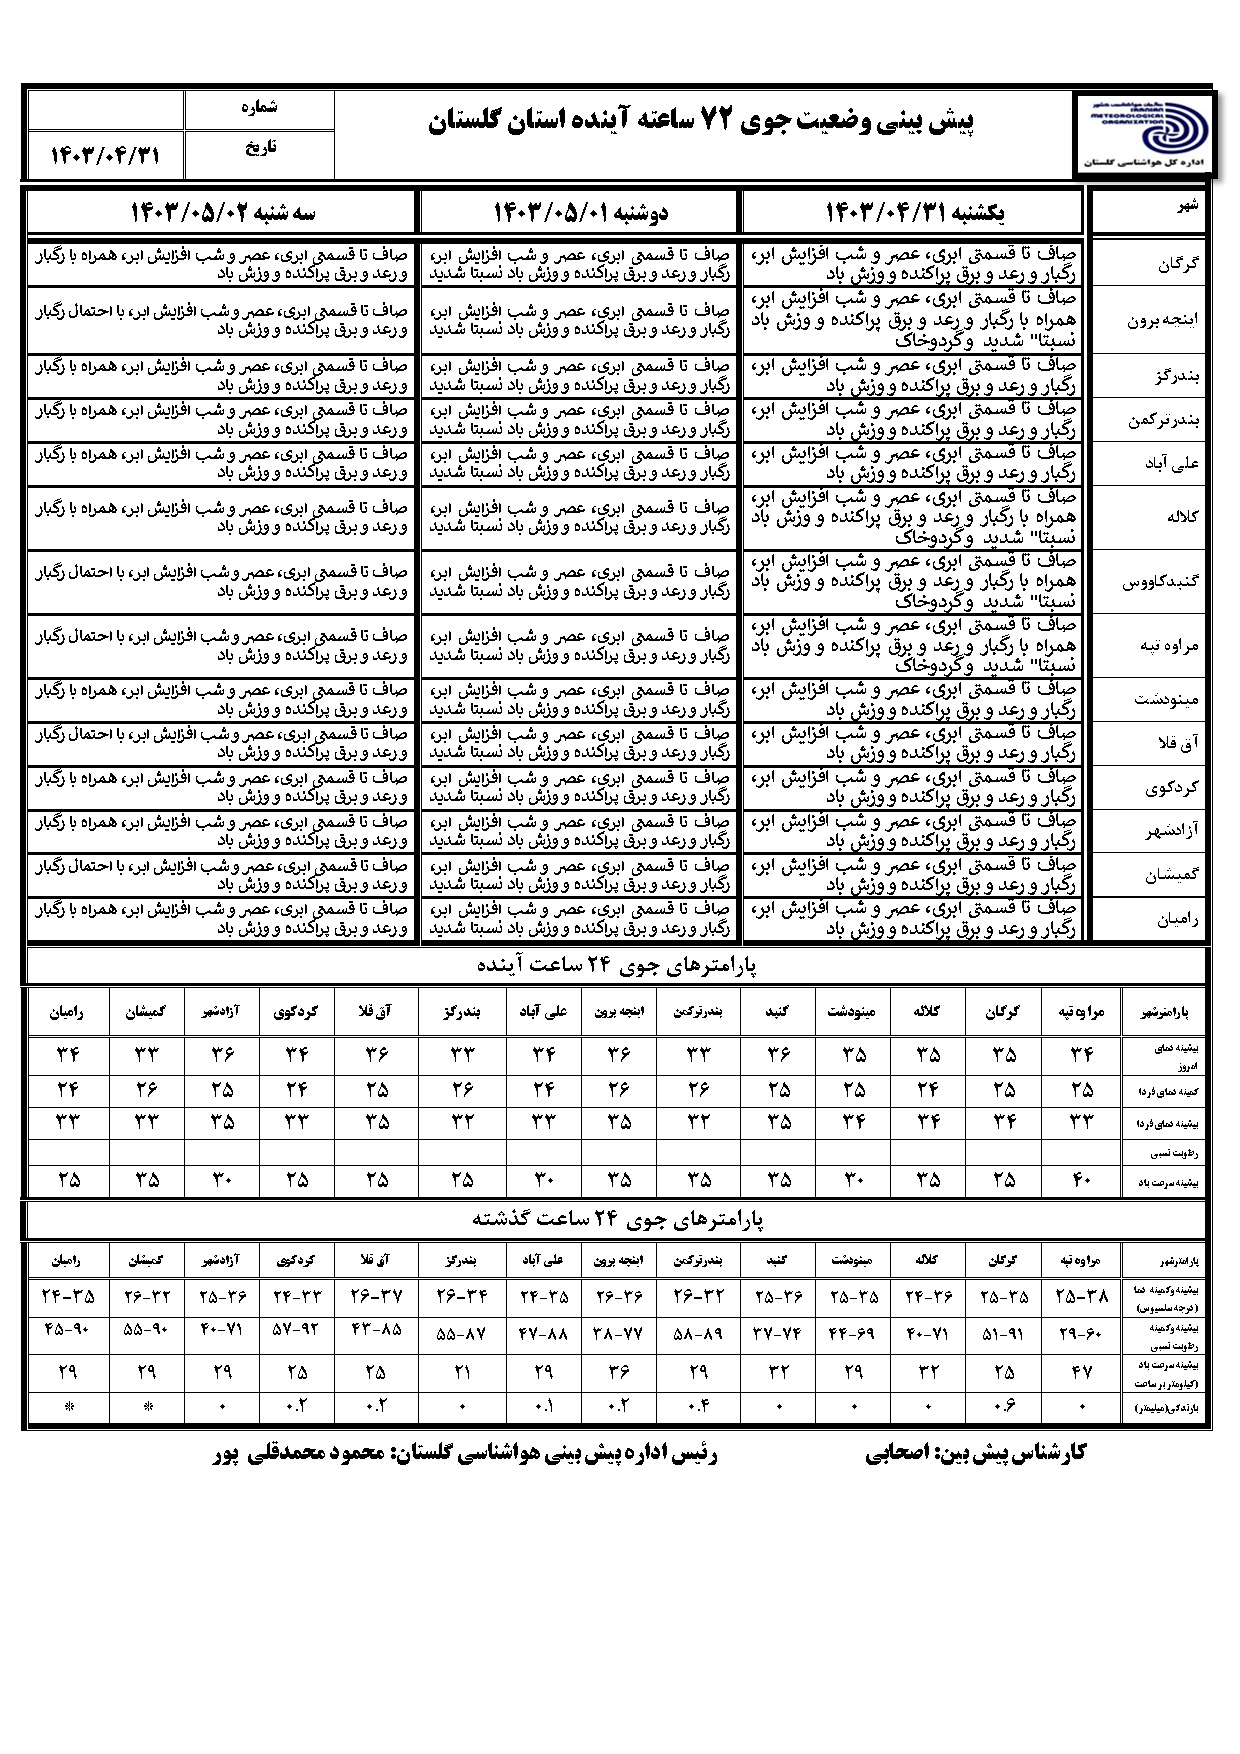 سازمان هواشناسی کشور
IRANIAN
METEOROLOGICAL
ORGANIZATION
اداره کل هواشناسی گلستان
پیش بینی وضعیت جوی ۷۲ ساعته آینده استان گلستان
شماره
تاریخ
۱۴۰۳/۰۴/۳۱
شهر
یکشنبه ۱۴۰۳/۰۴/۳۱
دوشنبه ۱۴۰۳/۰۵/۰۱
سه شنبه ۱۴۰۳/۰۵/۰۲
گرگان
صاف تا قسمتی ابری، عصر و شب افزایش ابر،
رگبار و رعد و برق پراکنده و وزش باد
صاف تا قسمتی ابری، عصر و شب افزایش ابر،
رگبار و رعد و برق پراکنده و وزش باد نسبتا شدید
صاف تا قسمتی ابری، عصر و شب افزایش ابر، همراه با رگبار
و رعد و برق پراکنده و وزش باد
اینچه برون
صاف تا قسمتی ابری، عصر و شب افزایش ابر،
همراه با رگبار و رعد و برق پراکنده و وزش باد
نسبتا" شدید و گردوخاک
صاف تا قسمتی ابری، عصر و شب افزایش ابر،
رگبار و رعد و برق پراکنده و وزش باد نسبتا شدید
صاف تا قسمتی ابری، عصر و شب افزایش ابر، با احتمال رگبار
و رعد و برق پراکنده و وزش باد
بندرگز
صاف تا قسمتی ابری، عصر و شب افزایش ابر،
رگبار و رعد و برق پراکنده و وزش باد
صاف تا قسمتی ابری، عصر و شب افزایش ابر،
رگبار و رعد و برق پراکنده و وزش باد نسبتا شدید
صاف تا قسمتی ابری، عصر و شب افزایش ابر، همراه با رگبار
و رعد و برق پراکنده و وزش باد
بندرترکمن
صاف تا قسمتی ابری، عصر و شب افزایش ابر،
رگبار و رعد و برق پراکنده و وزش باد
صاف تا قسمتی ابری، عصر و شب افزایش ابر،
رگبار و رعد و برق پراکنده و وزش باد نسبتا شدید
صاف تا قسمتی ابری، عصر و شب افزایش ابر، همراه با رگبار
و رعد و برق پراکنده و وزش باد
علی آباد
صاف تا قسمتی ابری، عصر و شب افزایش ابر،
رگبار و رعد و برق پراکنده و وزش باد
صاف تا قسمتی ابری، عصر و شب افزایش ابر،
رگبار و رعد و برق پراکنده و وزش باد نسبتا شدید
صاف تا قسمتی ابری، عصر و شب افزایش ابر، همراه با رگبار
و رعد و برق پراکنده و وزش باد
کلاله
صاف تا قسمتی ابری، عصر و شب افزایش ابر،
همراه با رگبار و رعد و برق پراکنده و وزش باد
نسبتا" شدید و گردوخاک
صاف تا قسمتی ابری، عصر و شب افزایش ابر،
رگبار و رعد و برق پراکنده و وزش باد نسبتا شدید
صاف تا قسمتی ابری، عصر و شب افزایش ابر، همراه با رگبار
و رعد و برق پراکنده و وزش باد
گنبدکاووس
صاف تا قسمتی ابری، عصر و شب افزایش ابر،
همراه با رگبار و رعد و برق پراکنده و وزش باد
نسبتا" شدید و گردوخاک
صاف تا قسمتی ابری، عصر و شب افزایش ابر،
رگبار و رعد و برق پراکنده و وزش باد نسبتا شدید
صاف تا قسمتی ابری، عصر و شب افزایش ابر، با احتمال رگبار
و رعد و برق پراکنده و وزش باد
مراوه تپه
صاف تا قسمتی ابری، عصر و شب افزایش ابر،
همراه با رگبار و رعد و برق پراکنده و وزش باد
نسبتا" شدید و گردوخاک
صاف تا قسمتی ابری، عصر و شب افزایش ابر،
رگبار و رعد و برق پراکنده و وزش باد نسبتا شدید
صاف تا قسمتی ابری، عصر و شب افزایش ابر، با احتمال رگبار
و رعد و برق پراکنده و وزش باد
مینودشت
صاف تا قسمتی ابری، عصر و شب افزایش ابر،
رگبار و رعد و برق پراکنده و وزش باد
صاف تا قسمتی ابری، عصر و شب افزایش ابر،
رگبار و رعد و برق پراکنده و وزش باد نسبتا شدید
صاف تا قسمتی ابری، عصر و شب افزایش ابر، همراه با رگبار
و رعد و برق پراکنده و وزش باد
آق قلا
صاف تا قسمتی ابری، عصر و شب افزایش ابر،
رگبار و رعد و برق پراکنده و وزش باد
صاف تا قسمتی ابری، عصر و شب افزایش ابر،
رگبار و رعد و برق پراکنده و وزش باد نسبتا شدید
صاف تا قسمتی ابری، عصر و شب افزایش ابر، با احتمال رگبار
و رعد و برق پراکنده و وزش باد
کردکوی
صاف تا قسمتی ابری، عصر و شب افزایش ابر،
رگبار و رعد و برق پراکنده و وزش باد
صاف تا قسمتی ابری، عصر و شب افزایش ابر،
رگبار و رعد و برق پراکنده و وزش باد نسبتا شدید
صاف تا قسمتی ابری، عصر و شب افزایش ابر، همراه با رگبار
و رعد و برق پراکنده و وزش باد
آزادشهر
صاف تا قسمتی ابری، عصر و شب افزایش ابر،
رگبار و رعد و برق پراکنده و وزش باد
صاف تا قسمتی ابری، عصر و شب افزایش ابر،
رگبار و رعد و برق پراکنده و وزش باد نسبتا شدید
صاف تا قسمتی ابری، عصر و شب افزایش ابر، همراه با رگبار
و رعد و برق پراکنده و وزش باد
گمیشان
صاف تا قسمتی ابری، عصر و شب افزایش ابر،
رگبار و رعد و برق پراکنده و وزش باد
صاف تا قسمتی ابری، عصر و شب افزایش ابر،
رگبار و رعد و برق پراکنده و وزش باد نسبتا شدید
صاف تا قسمتی ابری، عصر و شب افزایش ابر، با احتمال رگبار
و رعد و برق پراکنده و وزش باد
رامیان
صاف تا قسمتی ابری، عصر و شب افزایش ابر،
رگبار و رعد و برق پراکنده و وزش باد
صاف تا قسمتی ابری، عصر و شب افزایش ابر،
رگبار و رعد و برق پراکنده و وزش باد نسبتا شدید
صاف تا قسمتی ابری، عصر و شب افزایش ابر، همراه با رگبار
و رعد و برق پراکنده و وزش باد
پارامترهای جوی ۲۴ ساعت آینده
پارامترشهر مراوه تپه گرگان کلاله مینودشت گنبد بندرترکمن اینچه برون علی آباد بندرگز آق قلا کردکوی آزادشهر گمیشان رامیان
بیشینه دمای امروز ۳۴ ۳۵ ۳۵ ۳۵ ۳۶ ۳۳ ۳۶ ۳۴ ۳۳ ۳۶ ۳۴ ۳۶ ۳۳ ۳۴
کمینه دمای فردا ۲۵ ۲۵ ۲۴ ۲۵ ۲۵ ۲۶ ۲۶ ۲۴ ۲۶ ۲۵ ۲۴ ۲۵ ۲۶ ۲۴
بیشینه دمای فردا ۳۳ ۳۴ ۳۴ ۳۴ ۳۵ ۳۲ ۳۵ ۳۳ ۳۲ ۳۵ ۳۳ ۳۵ ۳۳ ۳۳
رطوبت نسبی
بیشینه سرعت باد ۴۰ ۲۵ ۳۵ ۳۰ ۳۵ ۳۵ ۳۵ ۳۰ ۲۵ ۲۵ ۲۵ ۳۰ ۳۵ ۲۵
پارامترهای جوی ۲۴ ساعت گذشته
پارامترشهر مراوه تپه گرگان کلاله مینودشت گنبد بندرترکمن اینچه برون علی آباد بندرگز آق قلا کردکوی آزادشهر گمیشان رامیان
بیشینه وکمینه دما (درجه سلسیوس) ۲۵-۳۸ ۲۵-۳۵ ۲۴-۳۶ ۲۵-۳۵ ۲۵-۳۶ ۲۶-۳۲ ۲۶-۳۶ ۲۴-۳۵ ۲۶-۳۴ ۲۶-۳۷ ۲۴-۳۳ ۲۵-۳۶ ۲۶-۳۲ ۲۴-۳۵
بیشینه وکمینه رطوبت نسبی ۲۹-۶۰ ۵۱-۹۱ ۴۰-۷۱ ۴۴-۶۹ ۳۷-۷۴ ۵۸-۸۹ ۳۸-۷۷ ۴۷-۸۸ ۵۵-۸۷ ۴۳-۸۵ ۵۷-۹۲ ۴۰-۷۱ ۵۵-۹۰ ۴۵-۹۰
بیشینه سرعت باد (کیلومتر بر ساعت) ۴۷ ۲۵ ۳۲ ۲۹ ۳۲ ۲۹ ۳۶ ۲۹ ۲۱ ۲۵ ۲۵ ۲۹ ۲۹ ۲۹
بارندگی(میلیمتر) ۰ ۰.۶ ۰ ۰ ۰ ۰.۴ ۰.۲ ۰.۱ ۰ ۰.۲ ۰.۲ ۰ * *
کارشناس پیش بین: اصحابی
رئیس اداره پیش بینی هواشناسی گلستان: محمود محمدقلی پور